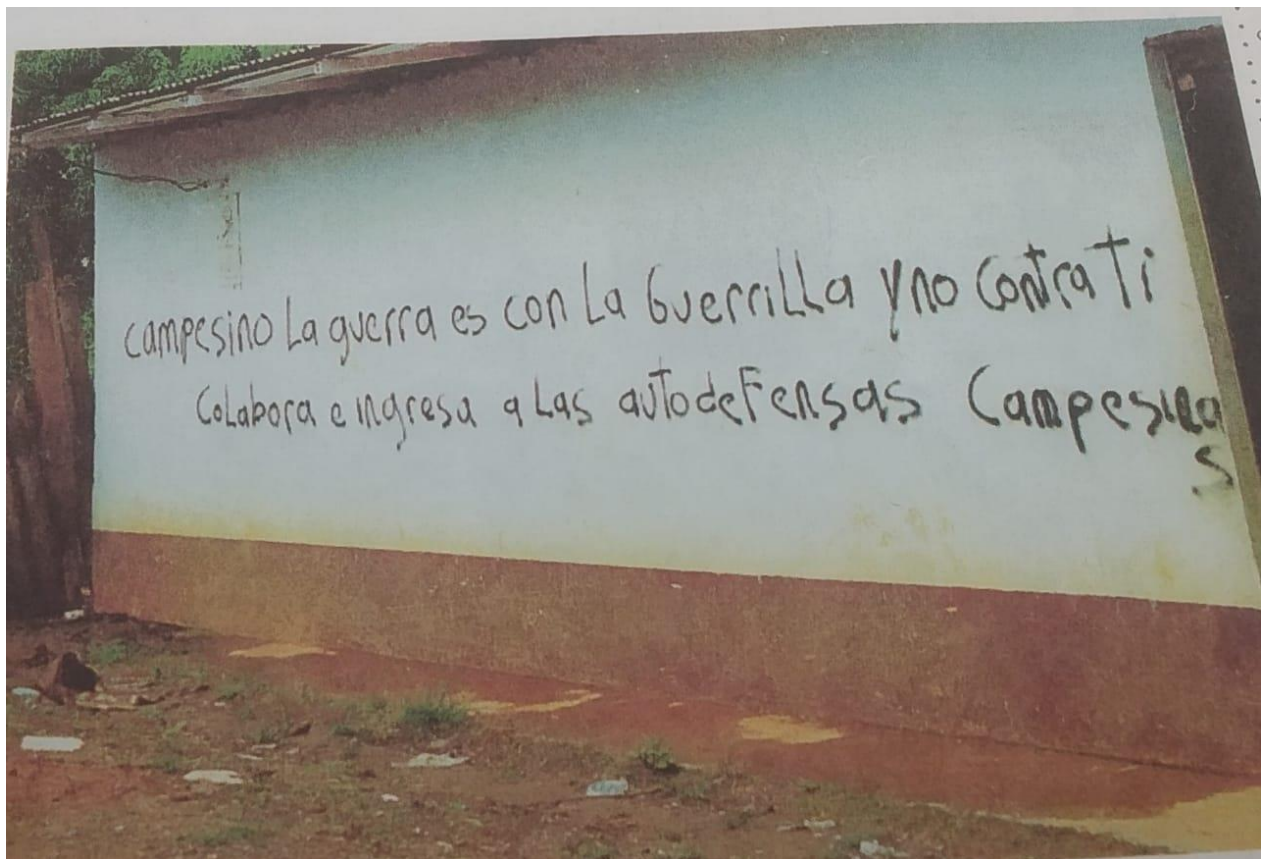 campesino La guerra es con La GuerriLLa y no Contra Ti
CoLabora e ingresa a Las autodeFensas Campesina
s